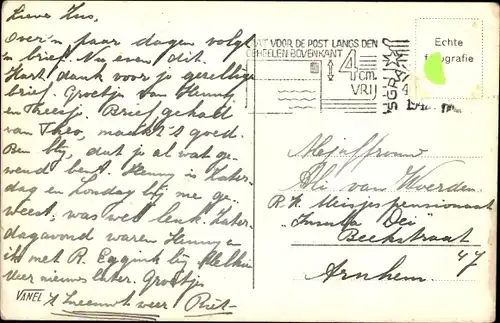 Lieve Zus,
Over 'n paar dagen volgt
'n brief. Nu even dit.
Hart. dank voor je gezellige
brief. Groetjes van Henny
en Theesje. Brief gehad
van Theo, maakt 't goed.
Ben blij, dat je al wat ge-
wend bent. Henny is Zater-
dag en Zondag bij me ge-
weest, was wel leuk. Zater-
dagavond waren Henny en
ik met R. Eggink bij
Meer nieuws later. Groetjes
VANEL 't sneeuwt weer Riet
LAAT VOOR DE POST LANGS DEN
GEHEELEN BOVENKANT
4 cm.
VRIJ
Echte
fotografie
Mejuffrouw
Ali van Woerden
R.K. Meisjespensionaat
"Insula Dei"
Beekstraat
47
Arnhem.